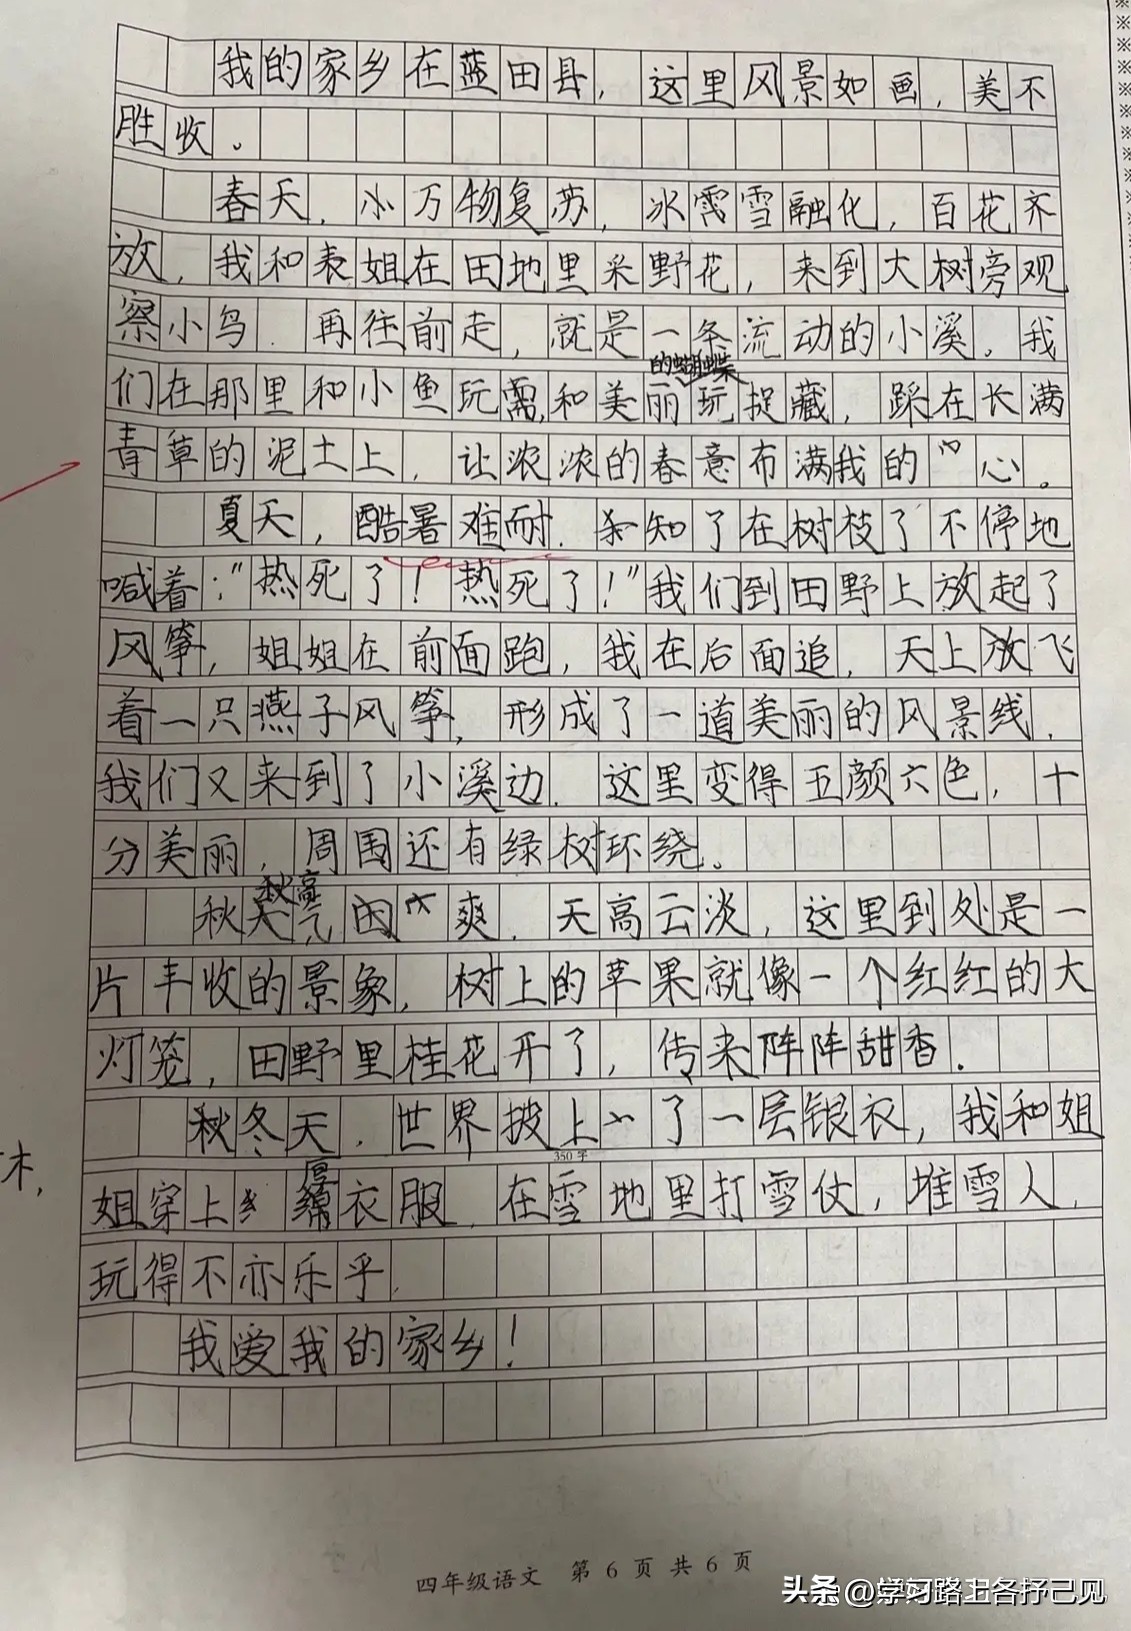 我的家乡在蓝田县，这里风景如画，美不
胜收。
春天，小万物复苏，冰雪融化，百花齐
放，我和表姐在田地里采野花，来到大树旁观
察小鸟．再往前走，就是一条流动的小溪。我
的蝴蝶
们在那里和小鱼玩需，和美丽玩捉藏，踩在长满
青草的泥土上，让浓浓的春意布满我的心。
夏天，酷暑难耐．知了在树枝了不停地
喊着："热死了！热死了！"我们到田野上放起了
风筝，姐姐在前面跑，我在后面追，天上放飞
着一只燕子风筝，形成了一道美丽的风景线．
我们又来到了小溪边．这里变得五颜六色，十
分美丽，周围还有绿树环绕。
秋高
秋天气因爽．天高云淡，这里到处是一
片丰收的景象，树上的苹果就像一个红红的大
灯笼，田野里桂花开了，传来阵阵甜香．
秋冬天，世界披上了一层银衣，我和姐
350字
厚
姐穿上绵衣服．在雪地里打雪仗，堆雪人，
玩得不亦乐乎．
我爱我的家乡！
木，
四年级语文 第 6 页 共 6 页
头条 @学习路上各抒己见